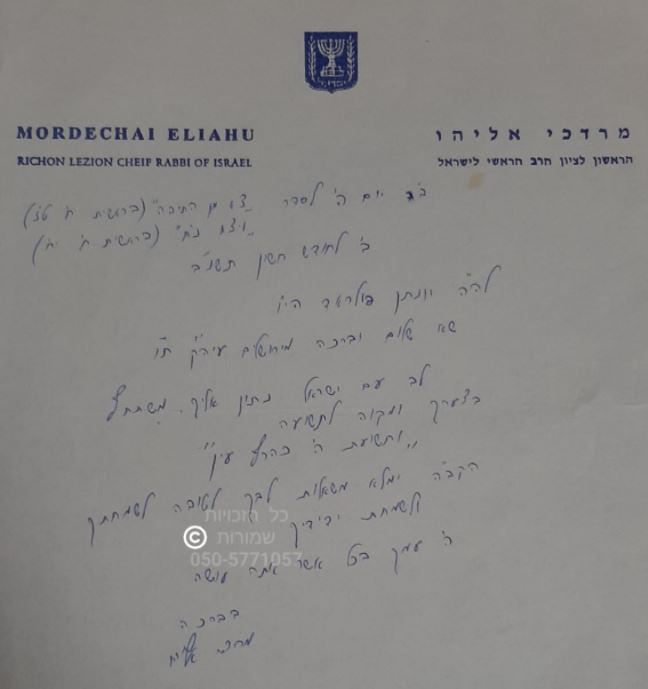 MORDECHAI ELIAHU
RICHON LEZION CHEIF RABBI OF ISRAEL
מרדכי אליהו
הראשון לציון הרב הראשי לישראל
ב"ה יום ה' לסדר "צא מן התיבה" (בראשית ח' ט"ז)
"ויצא נח" (בראשית ח' י"ח)
ב' לחודש חשון תשנ"ב
לה"ה יונתן פולארד הי"ו
שא שלום וברכה מירושלים עיה"ק ת"ו
לב עם ישראל נתון אליך. משתתף
בצערך ומקוה לתשועה
"ותשועת ה' כהרף עין"
הקב"ה ימלא משאלות לבך לטובה לשמחתך
ולשמחת ידידיך
ה' עמך בכל אשר אתה עושה
בברכה
מרדכי אליהו
כל הזכויות
שמורות ©
050-5771057